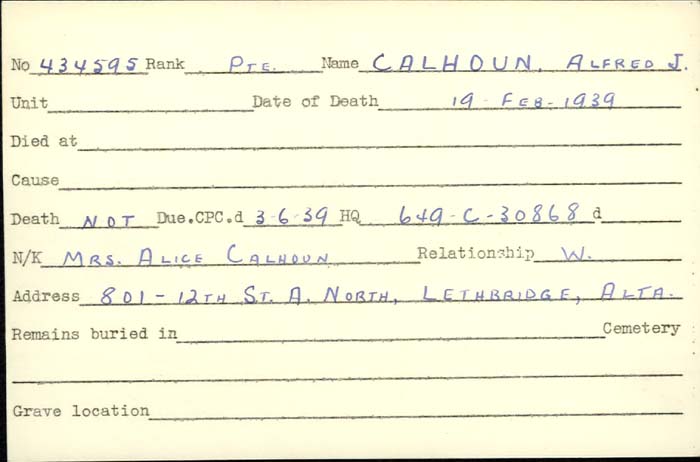 No 434595 Rank PTE. Name CALHOUN, ALFRED J.
Unit Date of Death 19 FEB-1939
Died at
Cause
Death NOT Due.CPC.d 3-6-39 HQ 649-C-30868 d
N/K MRS. ALICE CALHOUN Relationship W.
Address 801-12TH ST. A. NORTH, LETHBRIDGE, ALTA.
Remains buried in Cemetery
Grave location